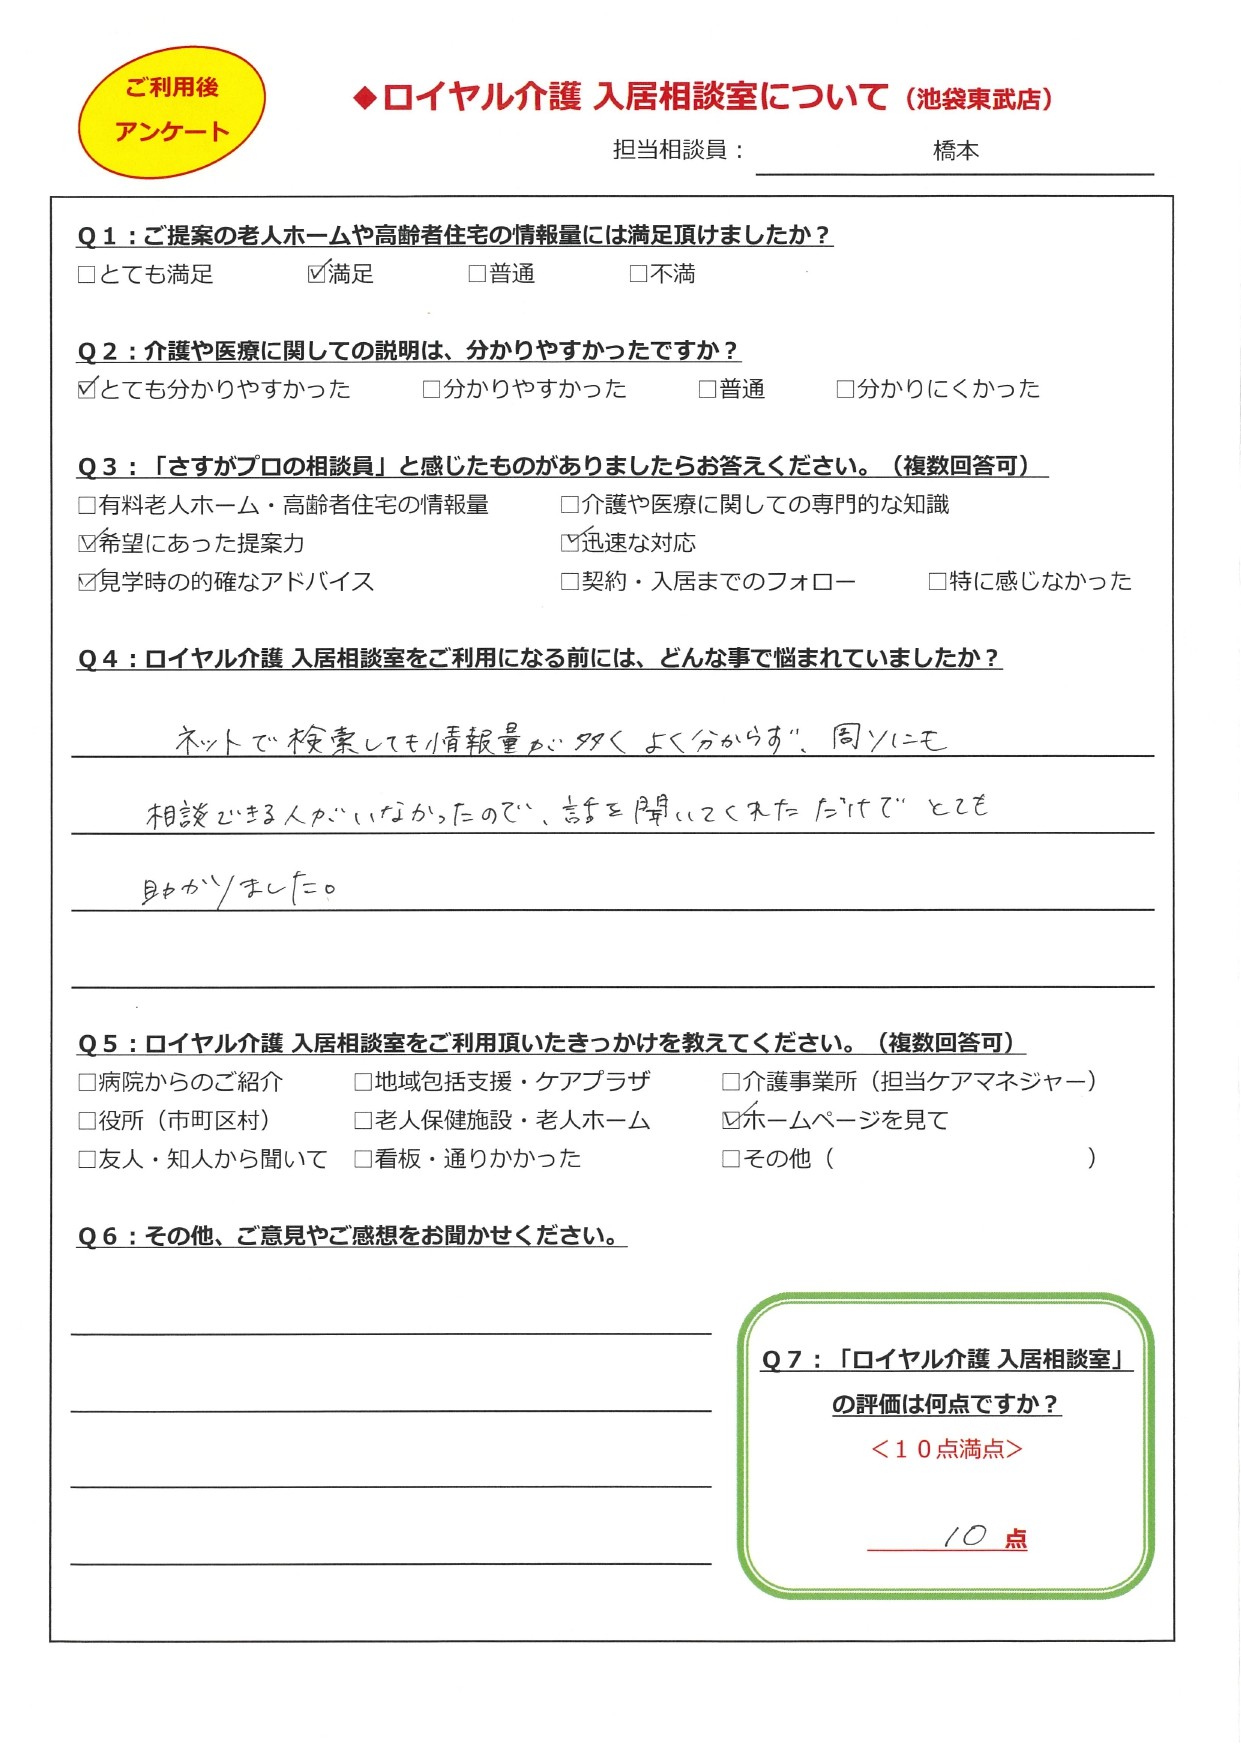 ご利用後
アンケート
◆ロイヤル介護 入居相談室について（池袋東武店）
担当相談員： 橋本
Q１：ご提案の老人ホームや高齢者住宅の情報量には満足頂けましたか？
□とても満足 ☑満足 □普通 □不満
Q２：介護や医療に関しての説明は、分かりやすかったですか？
☑とても分かりやすかった □分かりやすかった □普通 □分かりにくかった
Q３：「さすがプロの相談員」と感じたものがありましたらお答えください。（複数回答可）
□有料老人ホーム・高齢者住宅の情報量 □介護や医療に関しての専門的な知識
☑希望にあった提案力 ☑迅速な対応
☑見学時の的確なアドバイス □契約・入居までのフォロー □特に感じなかった
Q４：ロイヤル介護 入居相談室をご利用になる前には、どんな事で悩まれていましたか？
ネットで検索しても情報量が多くよく分からず、周りにも
相談できる人がいなかったので、話を聞いてくれただけでとても
助かりました。
Q５：ロイヤル介護 入居相談室をご利用頂いたきっかけを教えてください。（複数回答可）
□病院からのご紹介 □地域包括支援・ケアプラザ □介護事業所（担当ケアマネジャー）
□役所（市町区村） □老人保健施設・老人ホーム ☑ホームページを見て
□友人・知人から聞いて □看板・通りかかった □その他（ ）
Q６：その他、ご意見やご感想をお聞かせください。
Q７：「ロイヤル介護 入居相談室」
の評価は何点ですか？
＜１０点満点＞
10 点